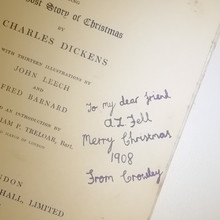 Ghost Story of Christmas
BY
CHARLES DICKENS
WITH THIRTEEN ILLUSTRATIONS BY
JOHN LEECH
AND
FRED BARNARD
AN INTRODUCTION BY
IAM P. TRELOAR, Bart.
DON
HALL, LIMITED
To my dear friend
A.Z. Fell
Merry Christmas
1908
From Crowley